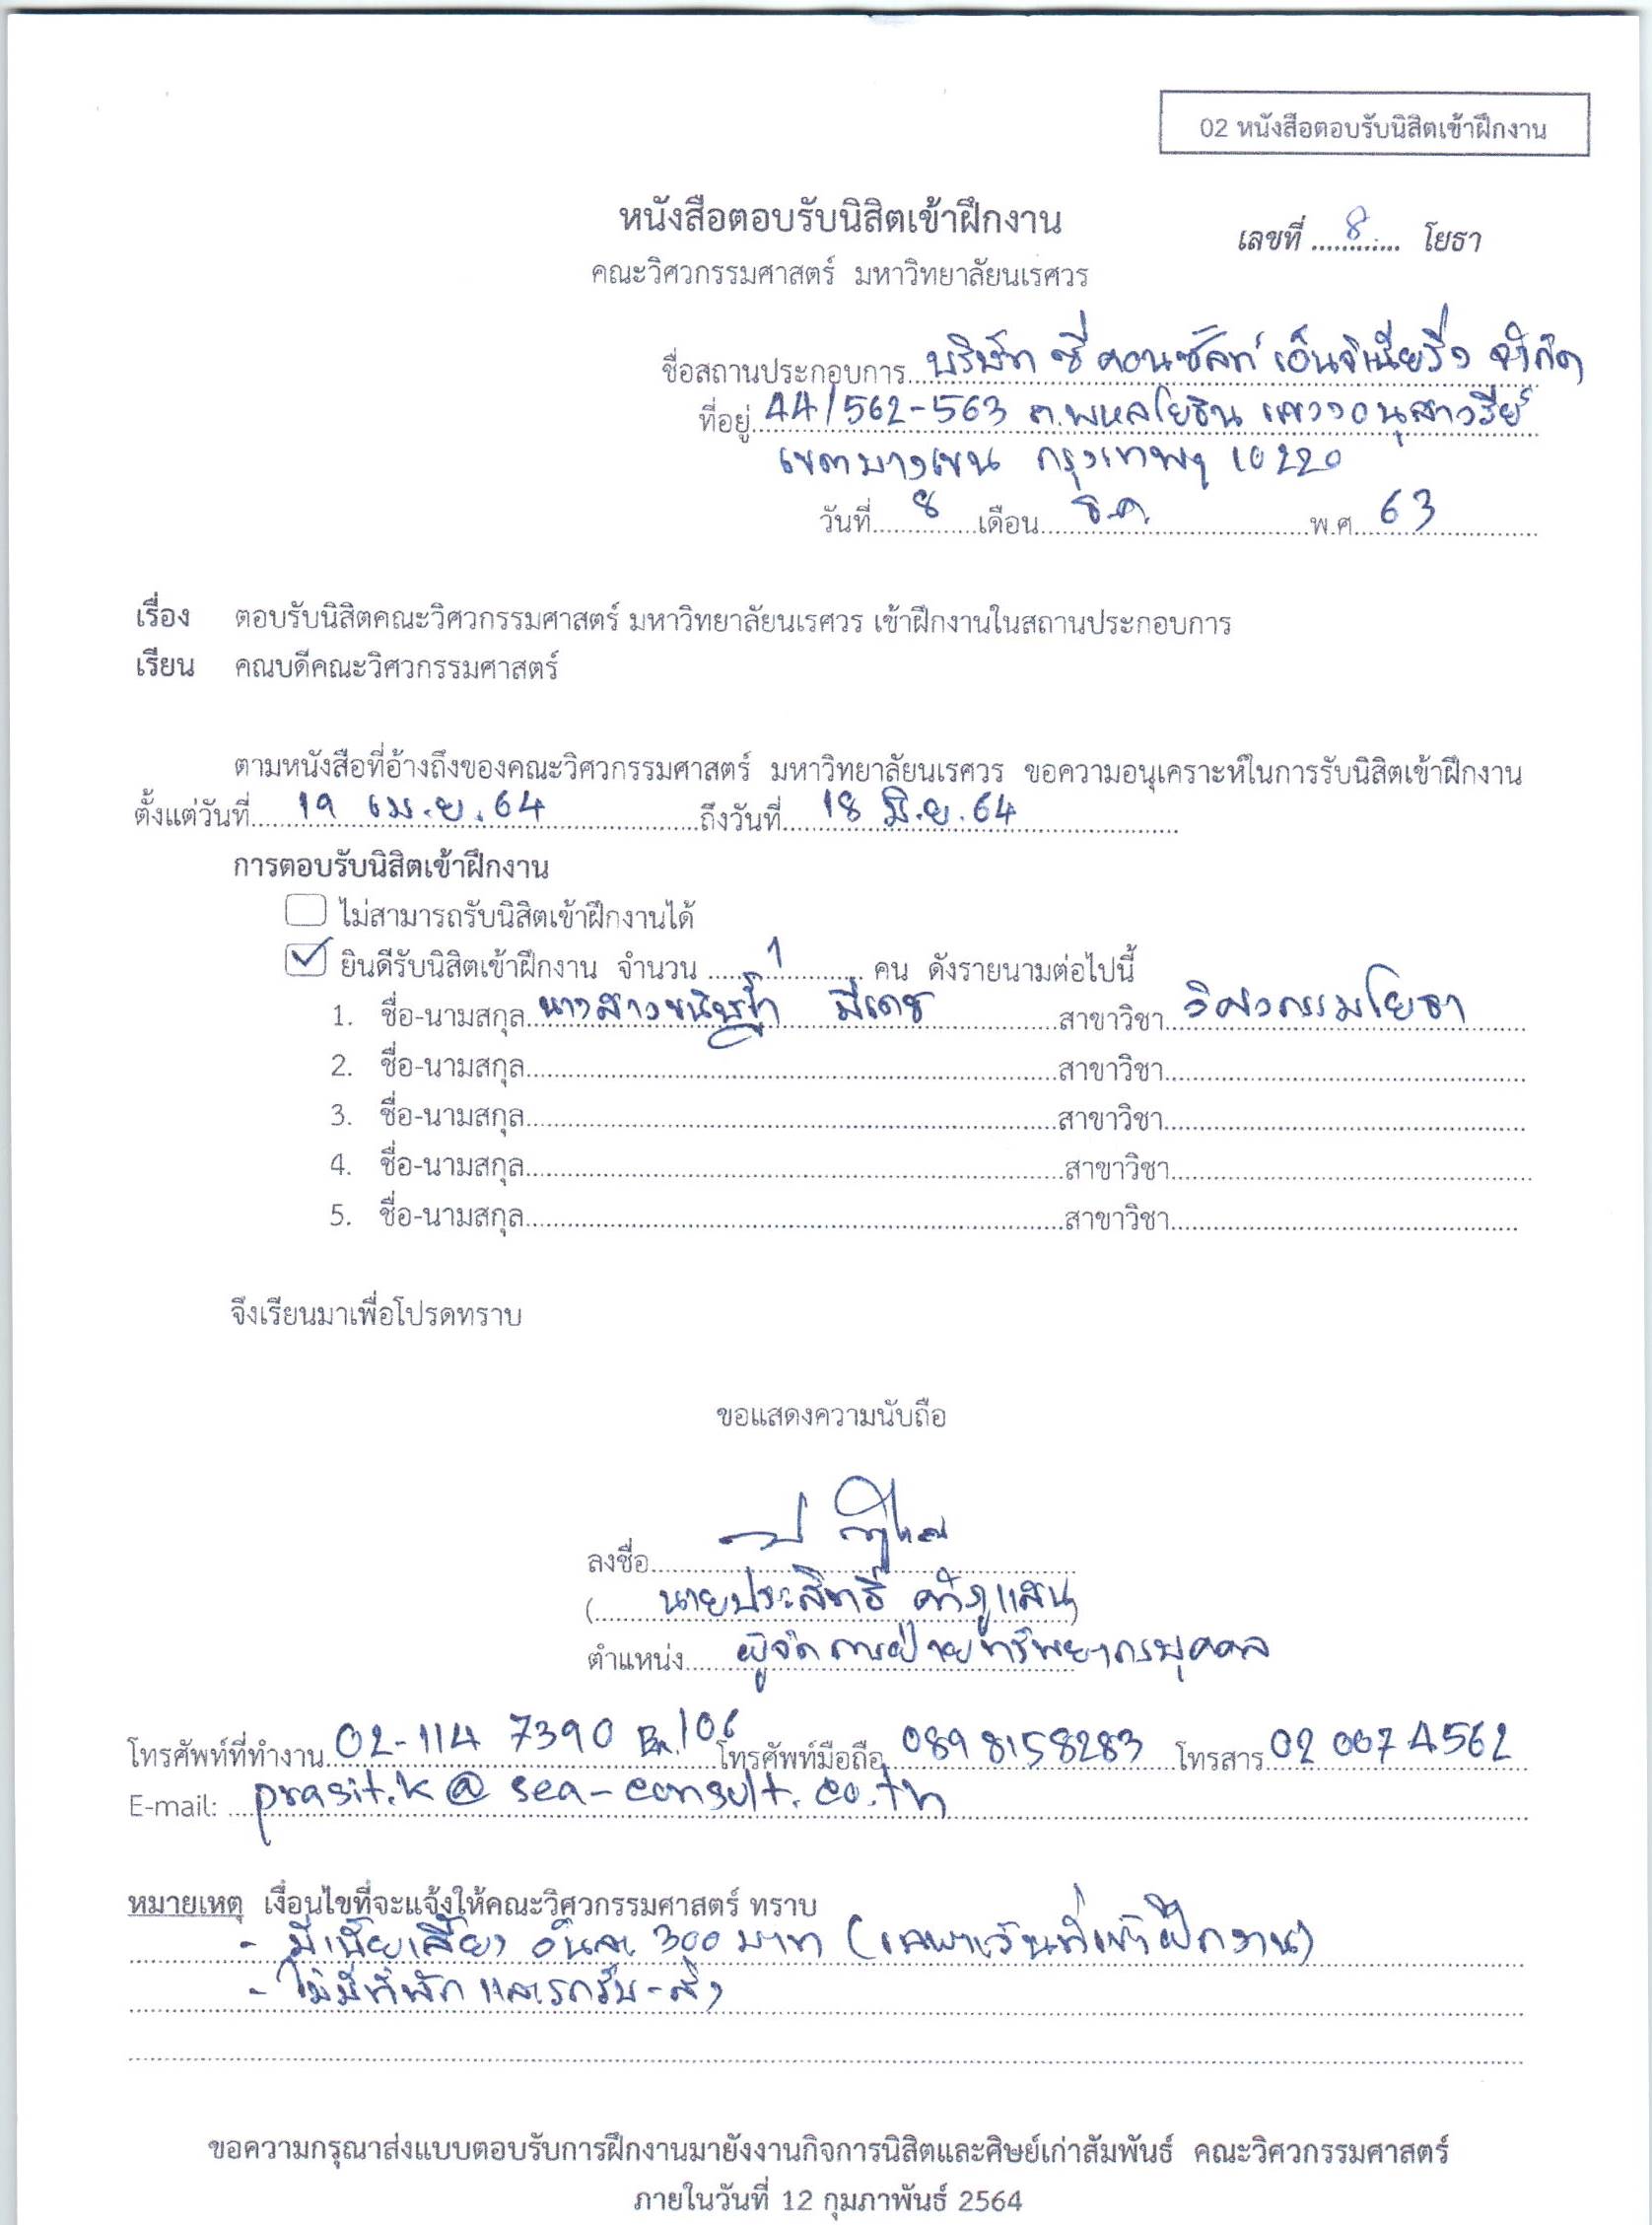 02 หนังสือตอบรับนิสิตเข้าฝึกงาน
หนังสือตอบรับนิสิตเข้าฝึกงาน
เลขที่ ....8.... โยธา
คณะวิศวกรรมศาสตร์ มหาวิทยาลัยนเรศวร
ชื่อสถานประกอบการ บริษัท ซี คอนซัลท์ เอ็นจิเนียริ่ง จำกัด
ที่อยู่ 44/562-563 ถ.พหลโยธิน แขวงอนุสาวรีย์
เขตบางเขน กรุงเทพฯ 10220
วันที่ 8 เดือน ธ.ค. พ.ศ. 63
เรื่อง ตอบรับนิสิตคณะวิศวกรรมศาสตร์ มหาวิทยาลัยนเรศวร เข้าฝึกงานในสถานประกอบการ
เรียน คณบดีคณะวิศวกรรมศาสตร์
ตามหนังสือที่อ้างถึงของคณะวิศวกรรมศาสตร์ มหาวิทยาลัยนเรศวร ขอความอนุเคราะห์ในการรับนิสิตเข้าฝึกงาน
ตั้งแต่วันที่ 19 เม.ย. 64 ถึงวันที่ 18 มิ.ย. 64
การตอบรับนิสิตเข้าฝึกงาน
ไม่สามารถรับนิสิตเข้าฝึกงานได้
ยินดีรับนิสิตเข้าฝึกงาน จำนวน 1 คน ดังรายนามต่อไปนี้
1. ชื่อ-นามสกุล นางสาวขนิษฐา มีเดช สาขาวิชา วิศวกรรมโยธา
2. ชื่อ-นามสกุล สาขาวิชา
3. ชื่อ-นามสกุล สาขาวิชา
4. ชื่อ-นามสกุล สาขาวิชา
5. ชื่อ-นามสกุล สาขาวิชา
จึงเรียนมาเพื่อโปรดทราบ
ขอแสดงความนับถือ
ลงชื่อ
( นายประสิทธิ์ คำภูแสน )
ตำแหน่ง ผู้จัดการฝ่ายทรัพยากรบุคคล
โทรศัพท์ที่ทำงาน 02-114 7390 106 โทรศัพท์มือถือ 089 8158283 โทรสาร 02 007 4562
E-mail: prasit.k@sea-consult.co.th
หมายเหตุ เงื่อนไขที่จะแจ้งให้คณะวิศวกรรมศาสตร์ ทราบ
- มีเบี้ยเลี้ยง วันละ 300 บาท (เฉพาะวันที่เข้าฝึกงาน)
- ไม่มีที่พัก และรถรับ-ส่ง
ขอความกรุณาส่งแบบตอบรับการฝึกงานมายังงานกิจการนิสิตและศิษย์เก่าสัมพันธ์ คณะวิศวกรรมศาสตร์
ภายในวันที่ 12 กุมภาพันธ์ 2564